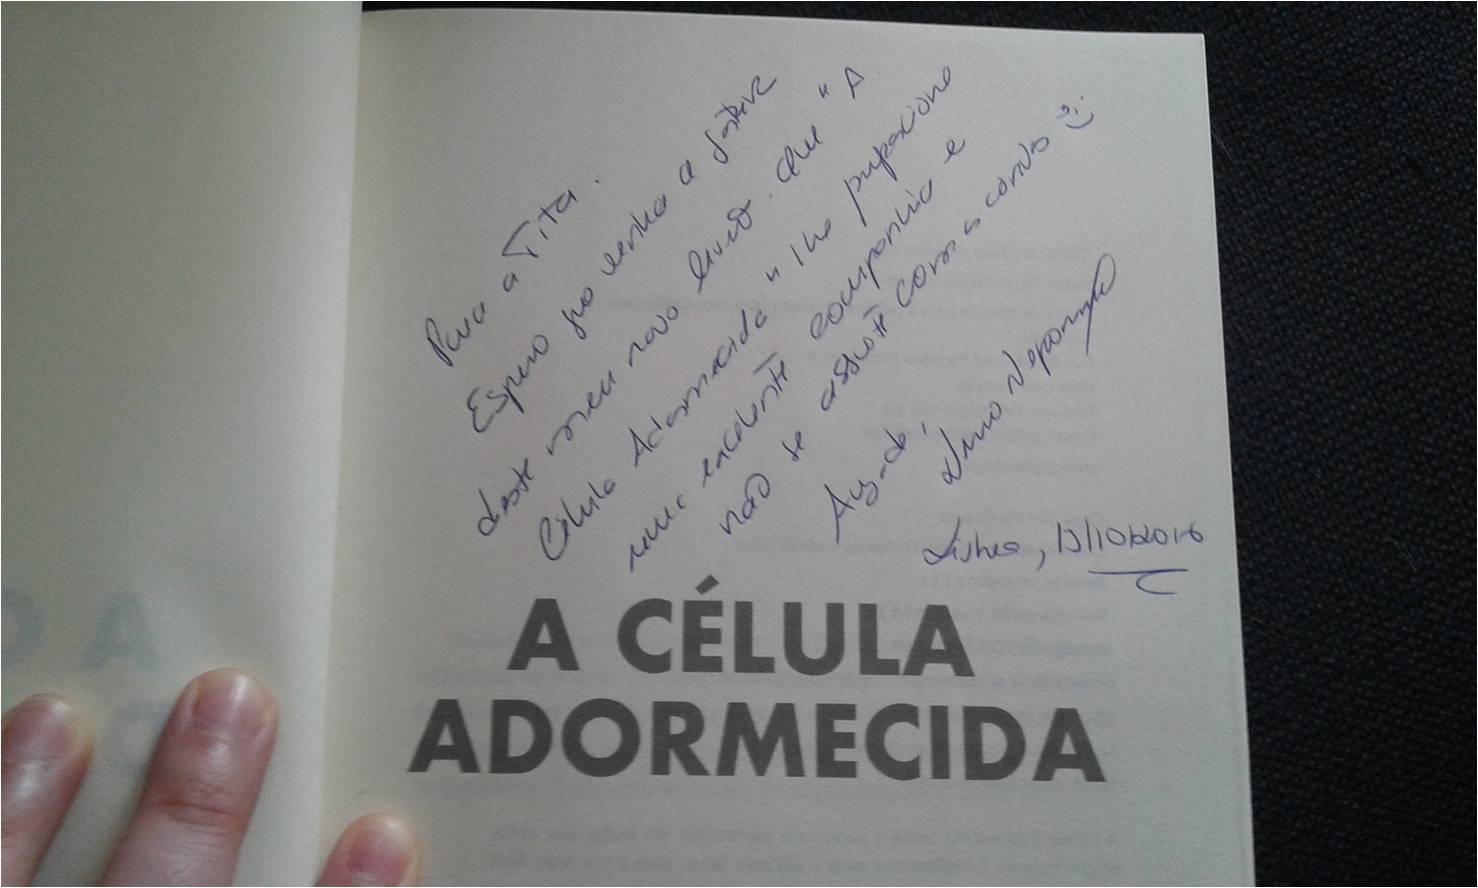 Para a Tita.
Espero que venha a gostar
deste meu novo livro. Que "A
Célula Adormecida" lhe proporcione
uma excelente companhia e
não se assuste com as coisas :)
Nuno Nepomuceno
Lisboa, 13/10/2016
A CÉLULA
ADORMECIDA